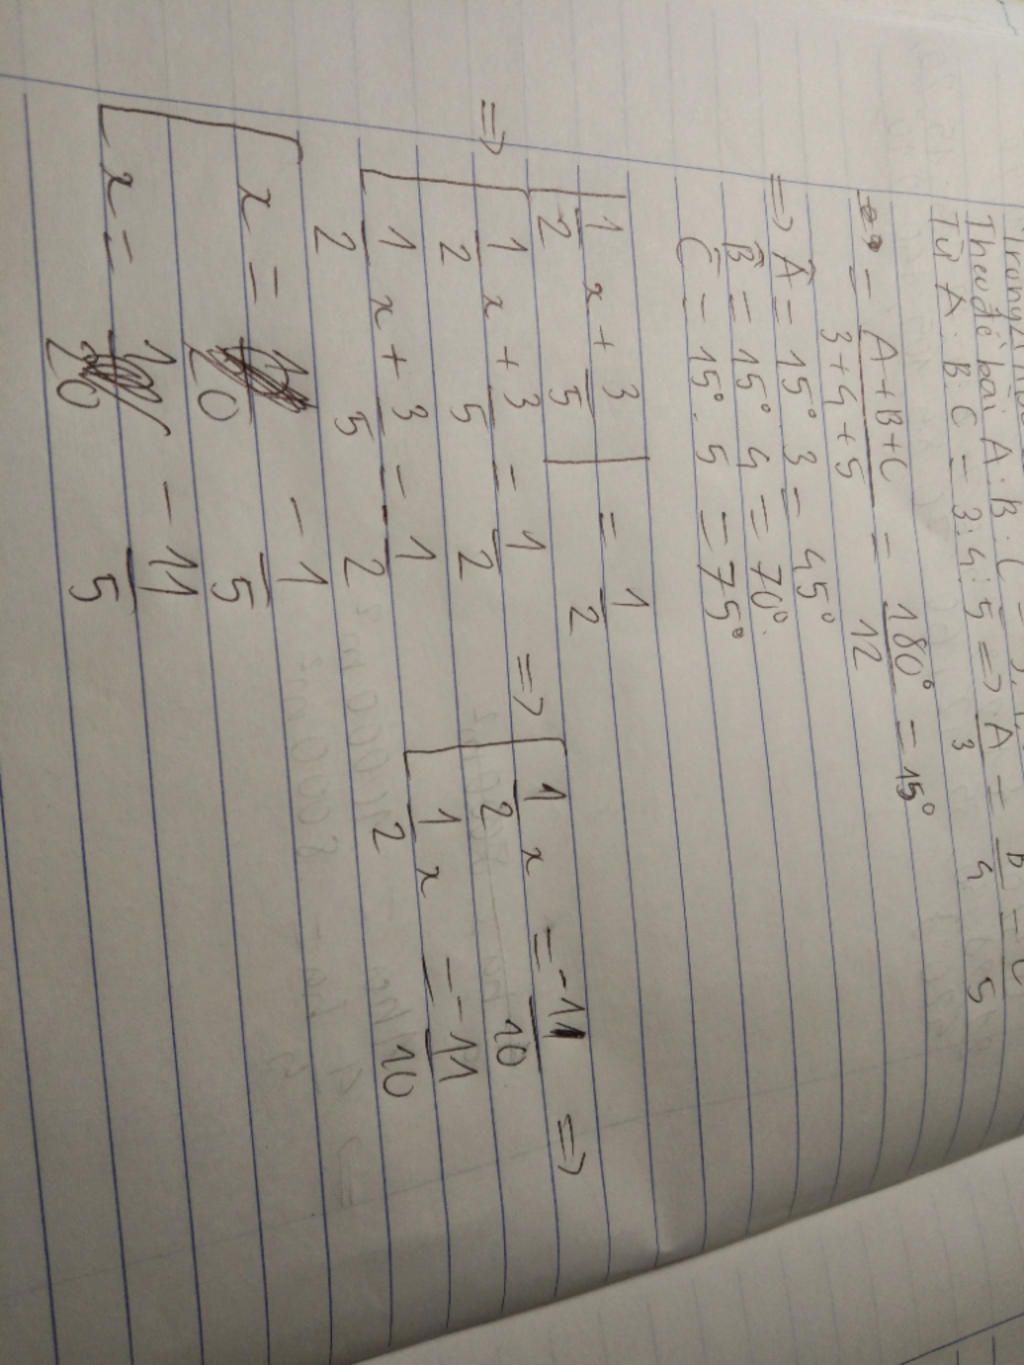 Theo đề bài A : B : C =
Từ A : B : C = 3 : 4 : 5 => A/3 = B/4 = C/5
= A + B + C / 3 + 4 + 5 = 180° / 12 = 15°
=> Â = 15° . 3 = 45°
B̂ = 15° . 4 = 70°
Ĉ = 15° . 5 = 75°
|1/2 x + 3/5| = 1/2
=> [ 1/2 x + 3/5 = 1/2 => [ 1/2 x = -11/10 =>
1/2 x + 3/5 = 1/2 1/2 x = -11/10
[ x = -1/5
x = -11/5